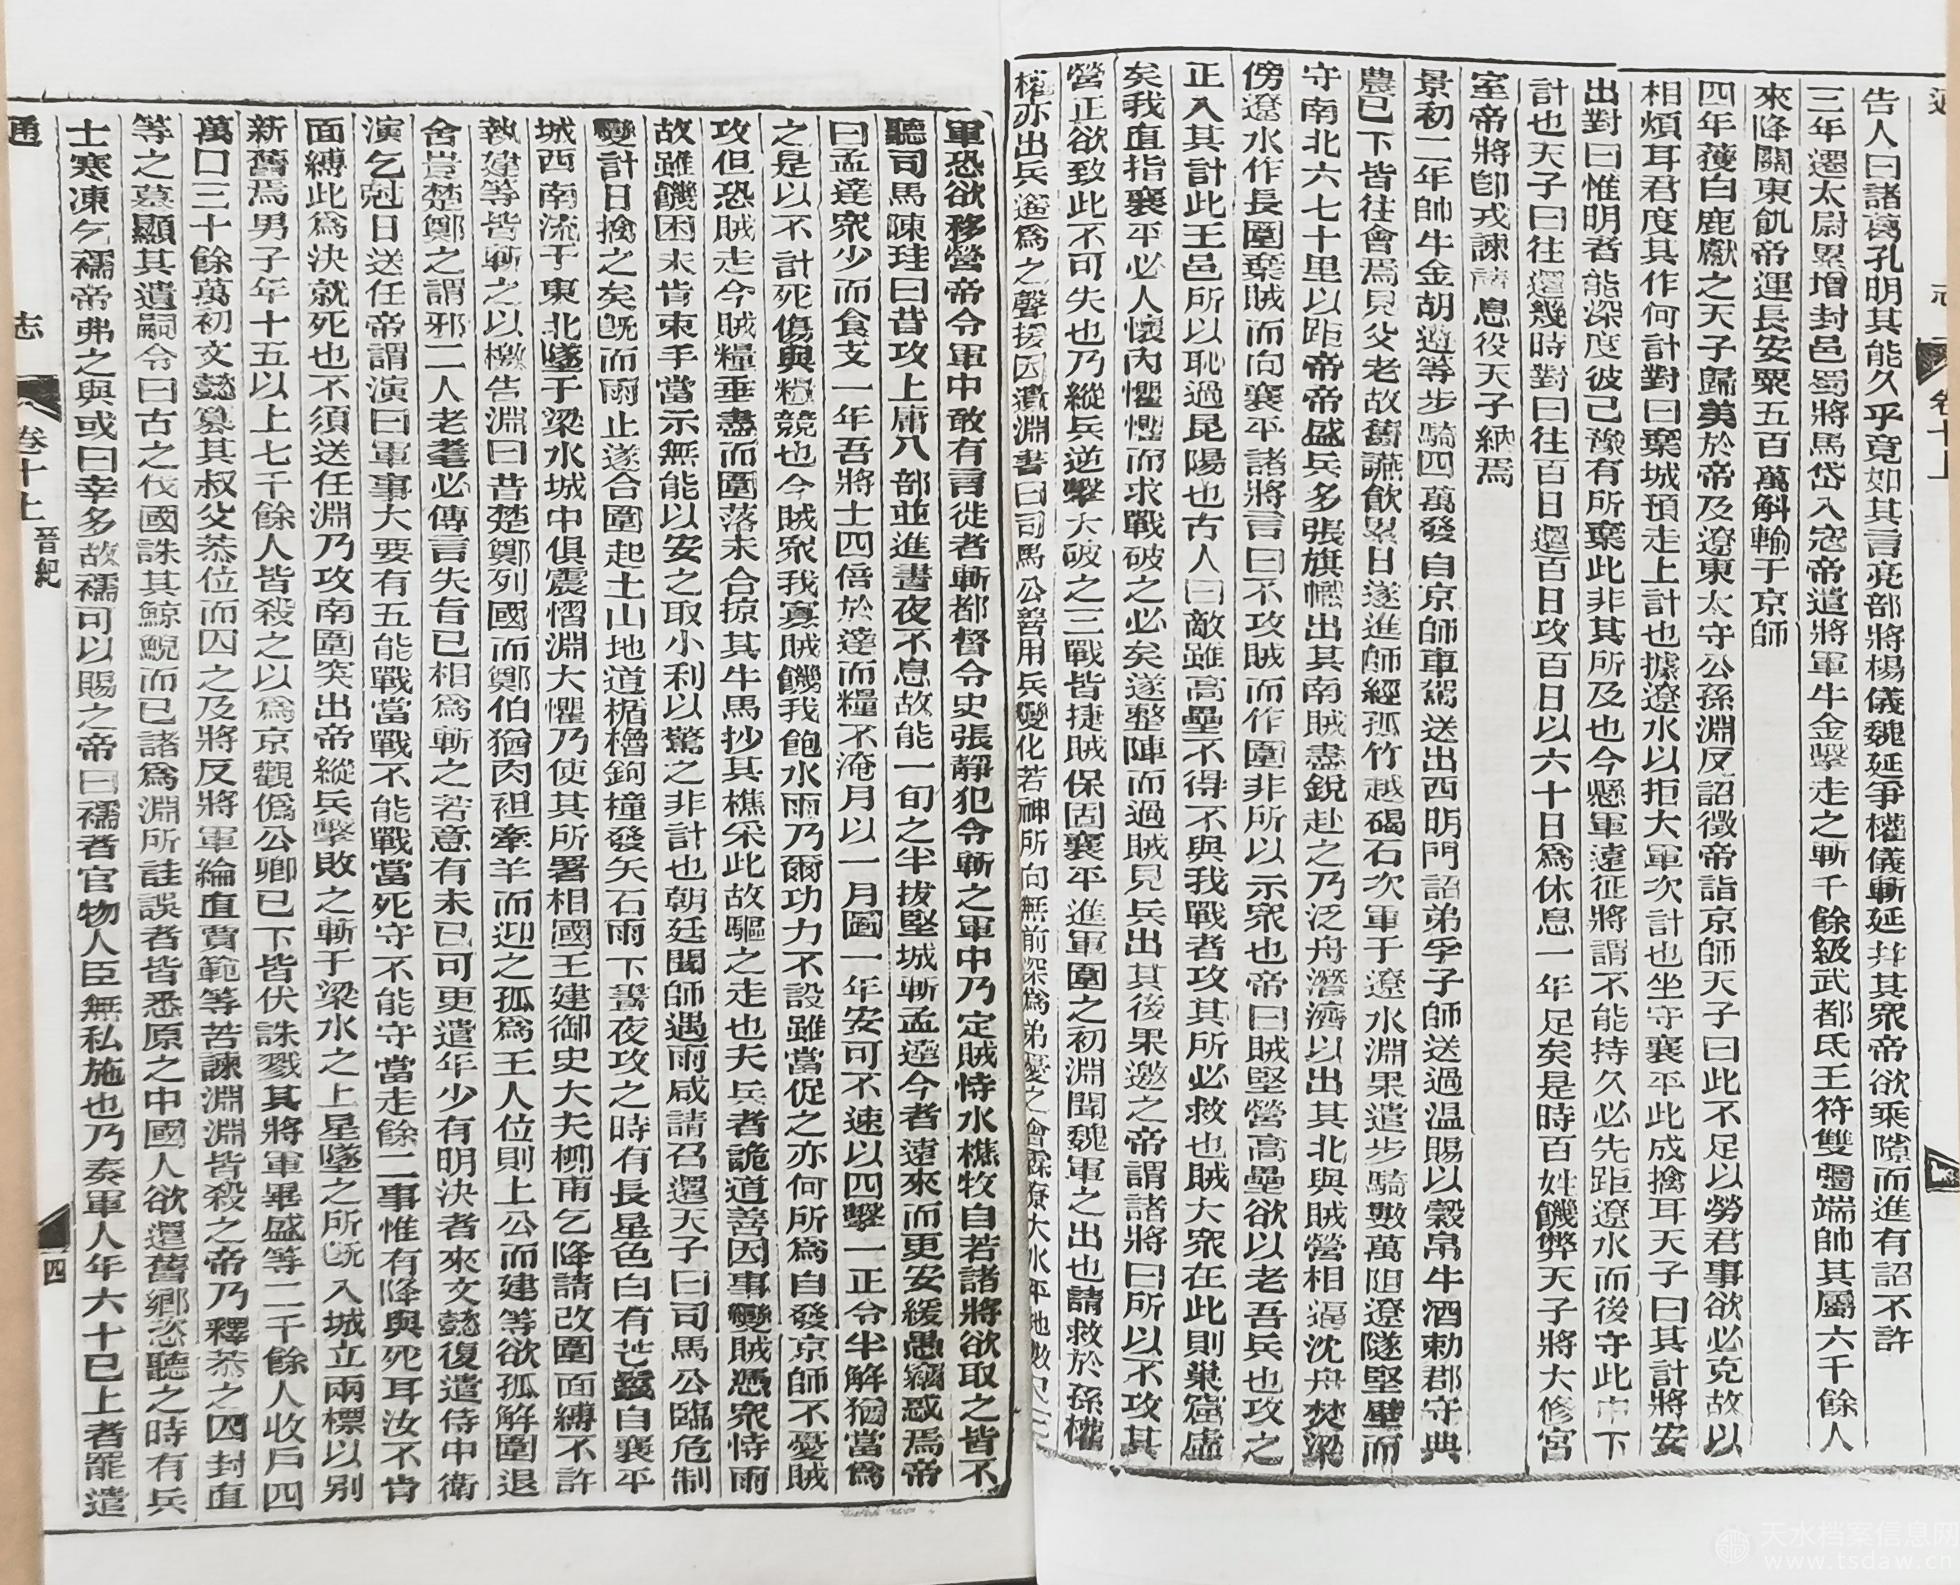 告人曰諸葛孔明其能久乎竟如其言亮部將楊儀魏延爭權儀斬延并其衆帝欲乘隙而進有詔不許
三年遷太尉累增封邑蜀將馬岱入寇帝遣將軍牛金擊走之斬千餘級武都氐王符雙彊端帥其屬六千餘人
來降關東飢帝運長安粟五百萬斛輸于京師
四年獲白鹿獻之天子歸美於帝及遼東太守公孫淵反詔徵帝詣京師天子曰此不足以勞君事欲必克故以
相煩耳君度其作何計對曰棄城預走上計也據遼水以拒大軍次計也坐守襄平此成擒耳天子曰其計將安
出對曰惟明者能深度彼己豫有所棄此非其所及也今懸軍遠征將謂不能持久必先距遼水而後守此中下
計也天子曰往還幾時對曰往百日還百日攻百日以六十日爲休息一年足矣是時百姓饑弊天子將大修宮
室帝將卽戎諫請息役天子納焉
景初二年帥牛金胡遵等步騎四萬發自京師車駕送出西明門詔弟孚子師送過温賜以穀帛牛酒勅郡守典
農已下皆往會焉見父老故舊讌飲累日遂進師經孤竹越碣石次軍于遼水淵果遣步騎數萬阻遼隧堅壁而
守南北六七十里以距帝帝盛兵多張旗幟出其南賊盡銳赴之乃泛舟潛濟以出其北與賊營相逼沈舟焚梁
傍遼水作長圍棄賊而向襄平諸將言曰不攻賊而作圍非所以示衆也帝曰賊堅營高壘欲以老吾兵也攻之
正入其計此王邑所以恥過昆陽也古人曰敵雖高壘不得不與我戰者攻其所必救也賊大衆在此則巢窟虛
矣我直指襄平必人懷內懼懼而求戰破之必矣遂整陣而過賊見兵出其後果邀之帝謂諸將曰所以不攻其
營正欲致此不可失也乃縱兵逆擊大破之三戰皆捷賊保固襄平進軍圍之初淵聞魏軍之出也請救於孫權
權亦出兵遙爲之聲援因遺淵書曰司馬公善用兵變化若神所向無前深爲弟憂之會霖潦大水平地數尺三
軍恐欲移營帝令軍中敢有言徙者斬都督令史張靜犯令斬之軍中乃定賊恃水樵牧自若諸將欲取之皆不
聽司馬陳珪曰昔攻上庸八部並進晝夜不息故能一旬之半拔堅城斬孟達今者遠來而更安緩愚竊惑焉帝
曰孟達衆少而食支一年吾將士四倍於達而糧不淹月以一月圖一年安可不速以四擊一正令半解猶當爲
之是以不計死傷與糧競也今賊衆我寡賊饑我飽水雨乃爾功力不設雖當促之亦何所爲自發京師不憂賊
攻但恐賊走今賊糧垂盡而圍落未合掠其牛馬抄其樵采此故驅之走也夫兵者詭道善因事變賊憑衆恃雨
故雖饑困未肯束手當示無能以安之取小利以驚之非計也朝廷聞師遇雨咸請召還天子曰司馬公臨危制
變計日擒之矣旣而雨止遂合圍起土山地道楯櫓鉤橦發矢石雨下晝夜攻之時有長星色白有芒鬣自襄平
城西南流于東北墜于梁水城中俱震慴淵大懼乃使其所署相國王建御史大夫柳甫乞降請改圍面縛不許
執建等皆斬之以檄告淵曰昔楚鄭列國而鄭伯猶肉袒牽羊而迎之孤爲王人位則上公而建等欲孤解圍退
舍豈楚鄭之謂邪二人老耄必傳言失旨已相爲斬之若意有未已可更遣年少有明決者來文懿復遣侍中衛
演乞尅日送任帝謂演曰軍事大要有五能戰當戰不能戰當死守不能守當走餘二事惟有降與死耳汝不肯
面縛此爲決就死也不須送任淵乃攻南圍突出帝縱兵擊敗之斬于梁水之上星墜之所旣入城立兩標以別
新舊焉男子年十五以上七千餘人皆殺之以爲京觀僞公卿已下皆伏誅戮其將軍畢盛等二千餘人收戶四
萬口三十餘萬初文懿簒其叔父恭位而囚之及將反將軍綸直賈範等苦諫淵淵皆殺之帝乃釋恭之囚封直
等之墓顯其遺嗣令曰古之伐國誅其鯨鯢而已諸爲淵所詿誤者皆悉原之中國人欲還舊鄉恣聽之時有兵
士寒凍乞襦帝弗之與或曰幸多故襦可以賜之帝曰襦者官物人臣無私施也乃奏軍人年六十已上者罷遣
通志
卷十上
晉紀
四
天水档案信息网
www.tsdaw.cn